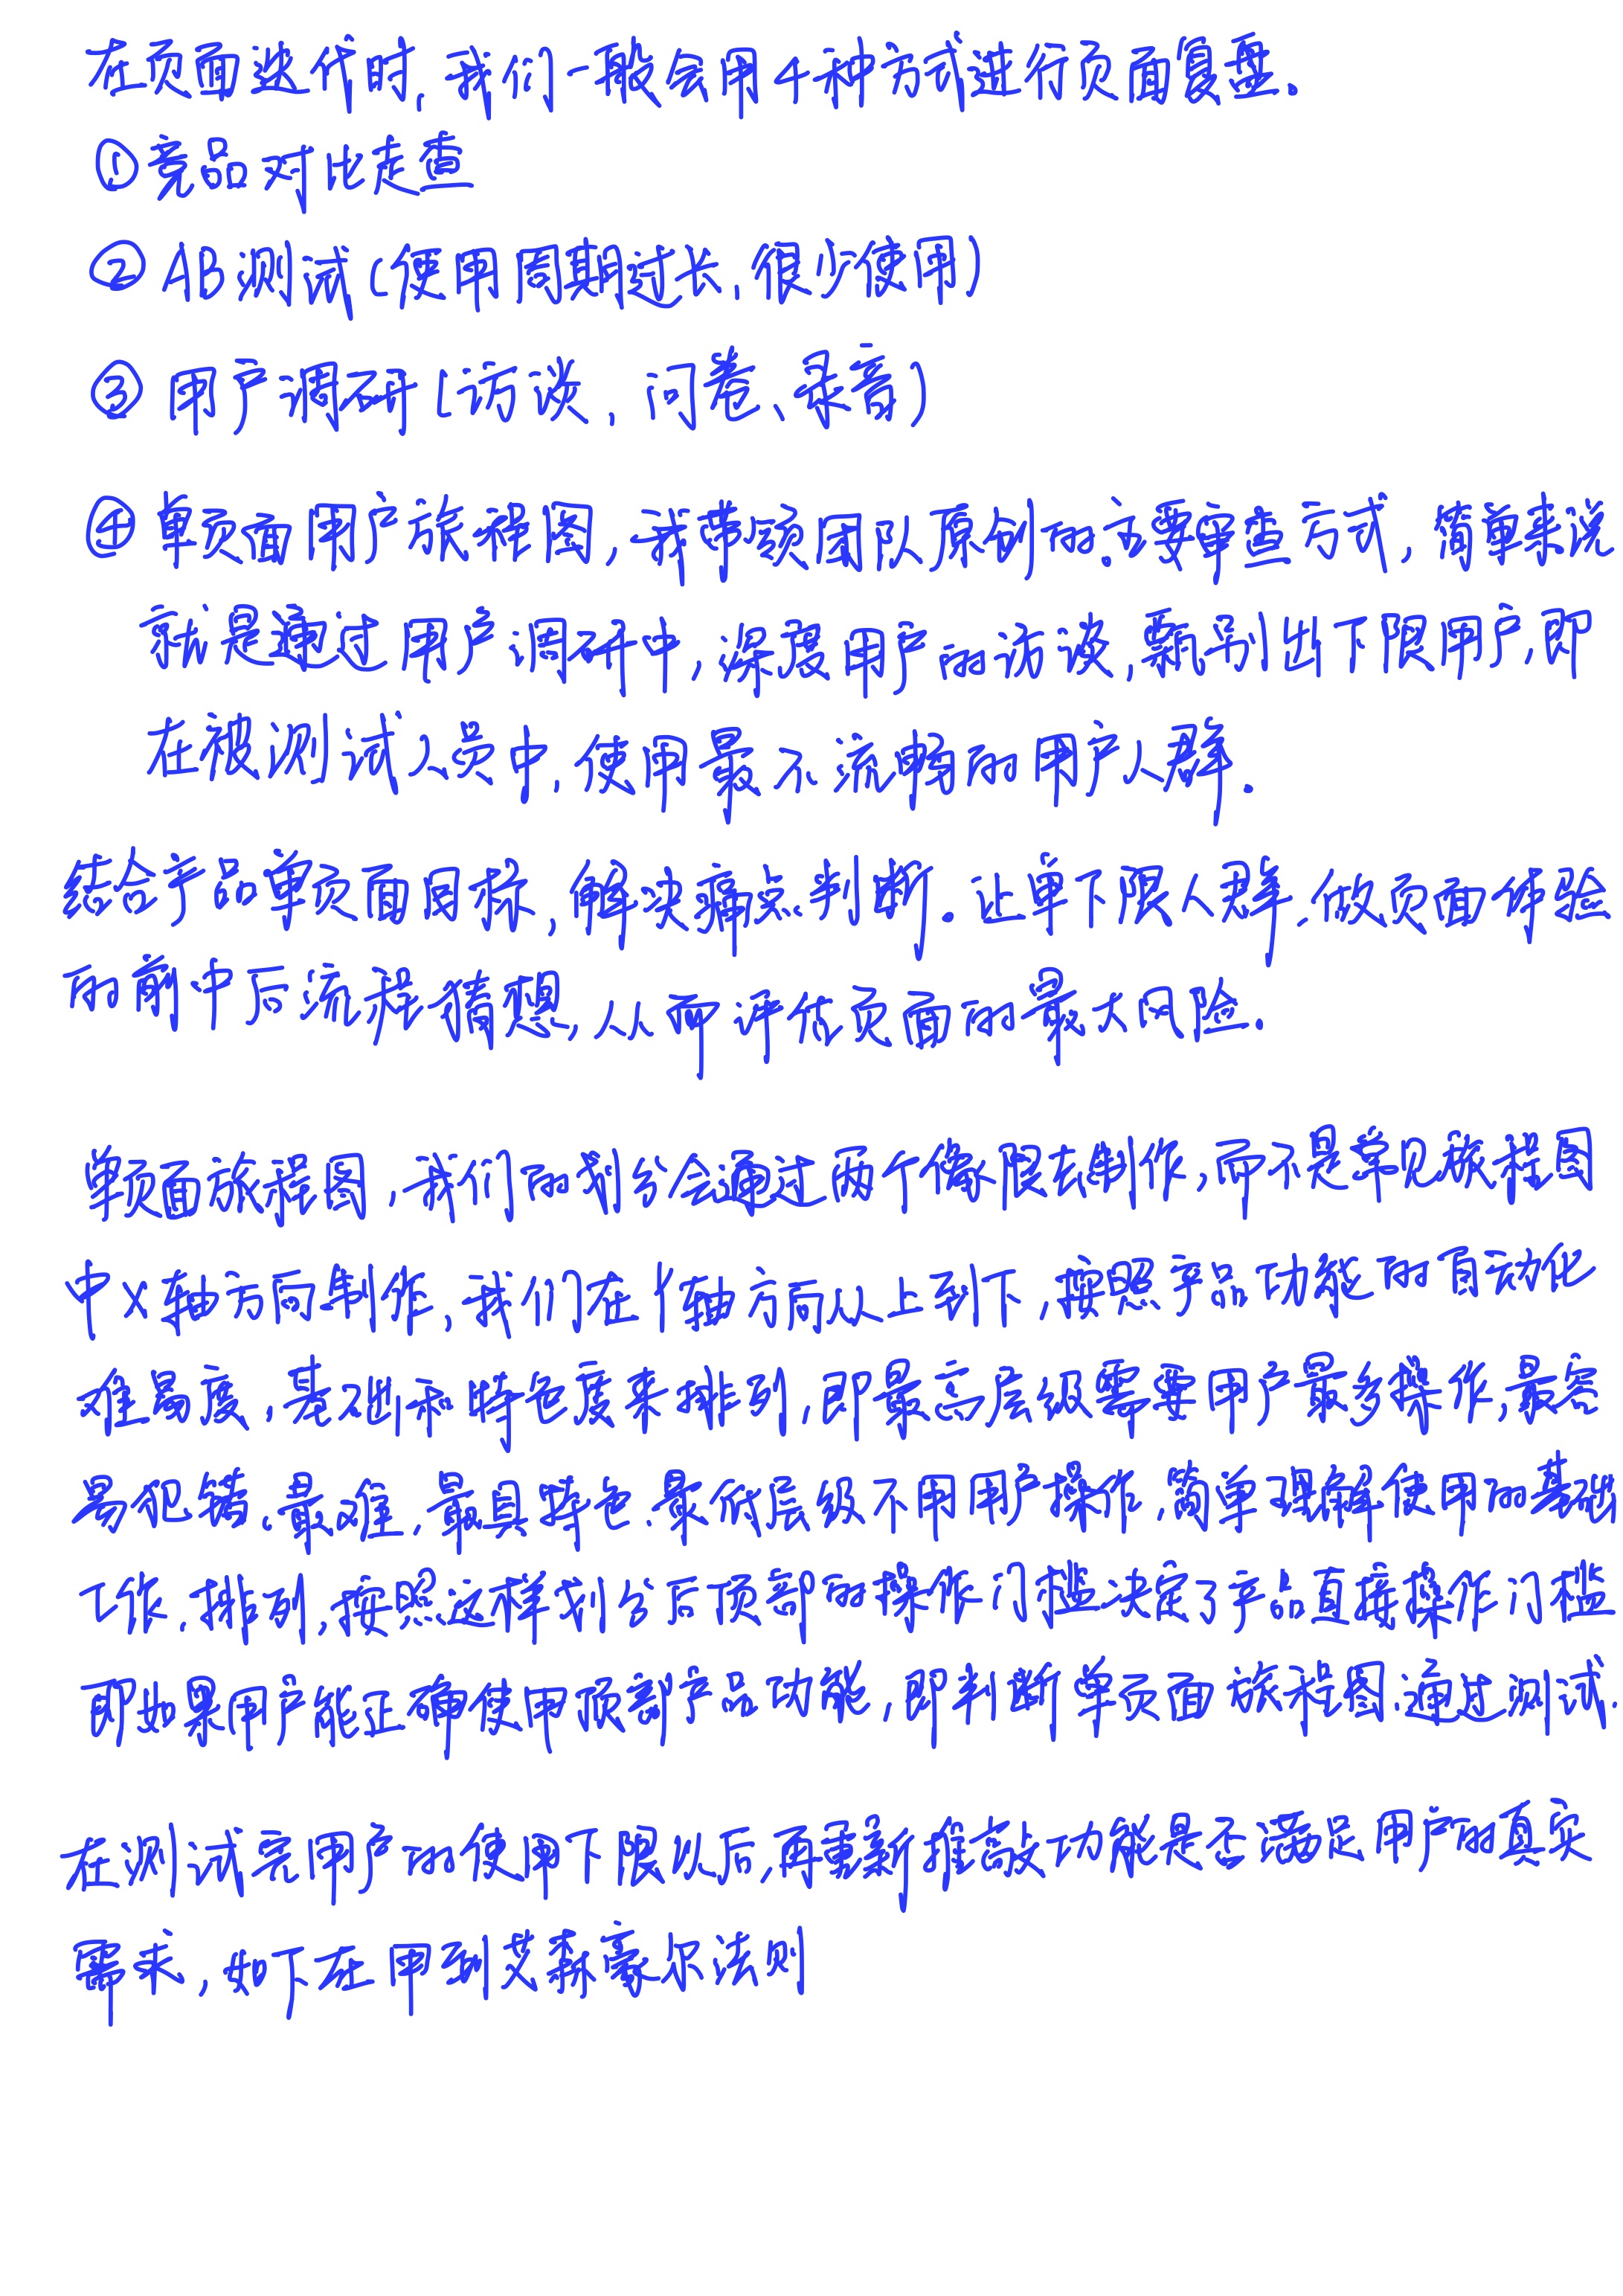 在页面迭代时,我们一般会用4种方式进行页面复盘.
①竞品对比走查
②AB测试(使用周期过长,很少使用)
③用户调研(访谈,问卷、录音)
④单页面用户旅程图,我带领团队原创的主要审查方式,简单来说
就是通过用户调研中,深度用户的访谈,甄别出下限用户,即
在被测试人员中,使用最不流畅的用户人群.
结合产品单页面目标,解决痛点判断.让单下限人群,做页面体验
的前中后流程猜想,从而评估页面的最大风险.
单页面旅程图,我们的划分会通过两个像限去制作,而不是常见旅程图
中X轴方向制作,我们在Y轴方向从上到下,按照产品功能的自动化
难易度,基础和特色度来排列,即最高层级需要用户最多操作,最容
易犯错、最难,最具特色.最低层级不用用户操作,简单理解使用的基础
工作.排列,按照这样划分后顶部的操作门槛决定了产品直接操作门槛
即如果用户能正确使用顶部产品功能,即判断单页面旅程图.通过测试.
在测试完用户的使用下限以后,再重新推敲功能是否满足用户的真实
需求,如下在用到艾森豪尔法则